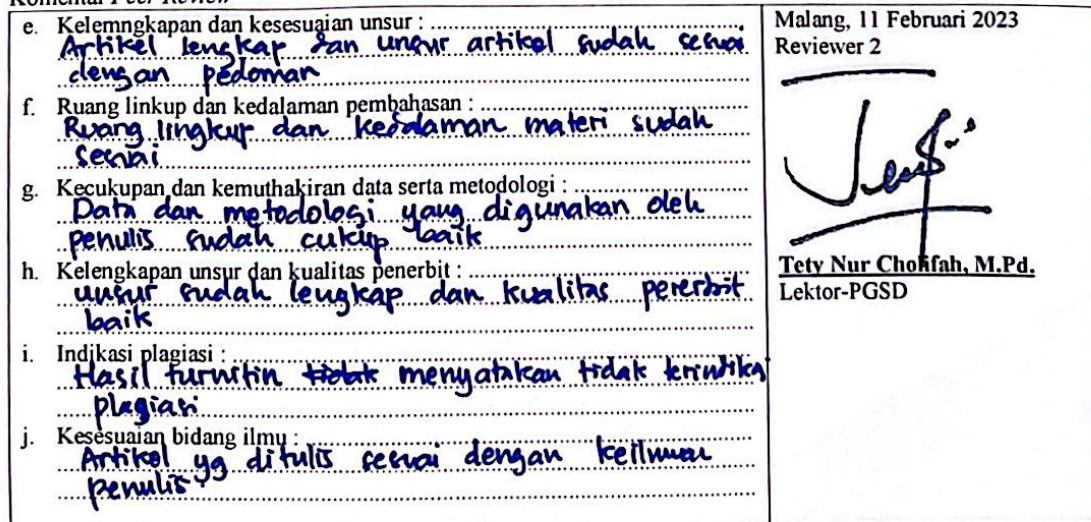 Komentar Peer Review
e. Kelemngkapan dan kesesuaian unsur : ........
Artikel lengkap dan unsur artikel sudah sesuai
dengan pedoman
f. Ruang linkup dan kedalaman pembahasan : ........
Ruang lingkup dan kedalaman materi sudah
sesuai
g. Kecukupan dan kemuthakiran data serta metodologi : ........
Data dan metodologi yang digunakan oleh
penulis sudah cukup baik
h. Kelengkapan unsur dan kualitas penerbit : ........
unsur sudah lengkap dan kualitas penerbit
baik
i. Indikasi plagiasi : ........
Hasil turnitin tidak menyatakan tidak terindikasi
plagiasi
j. Kesesuaian bidang ilmu : ........
Artikel yg ditulis sesuai dengan keilmuan
penulis
Malang, 11 Februari 2023
Reviewer 2
Tety Nur Cholifah, M.Pd.
Lektor-PGSD